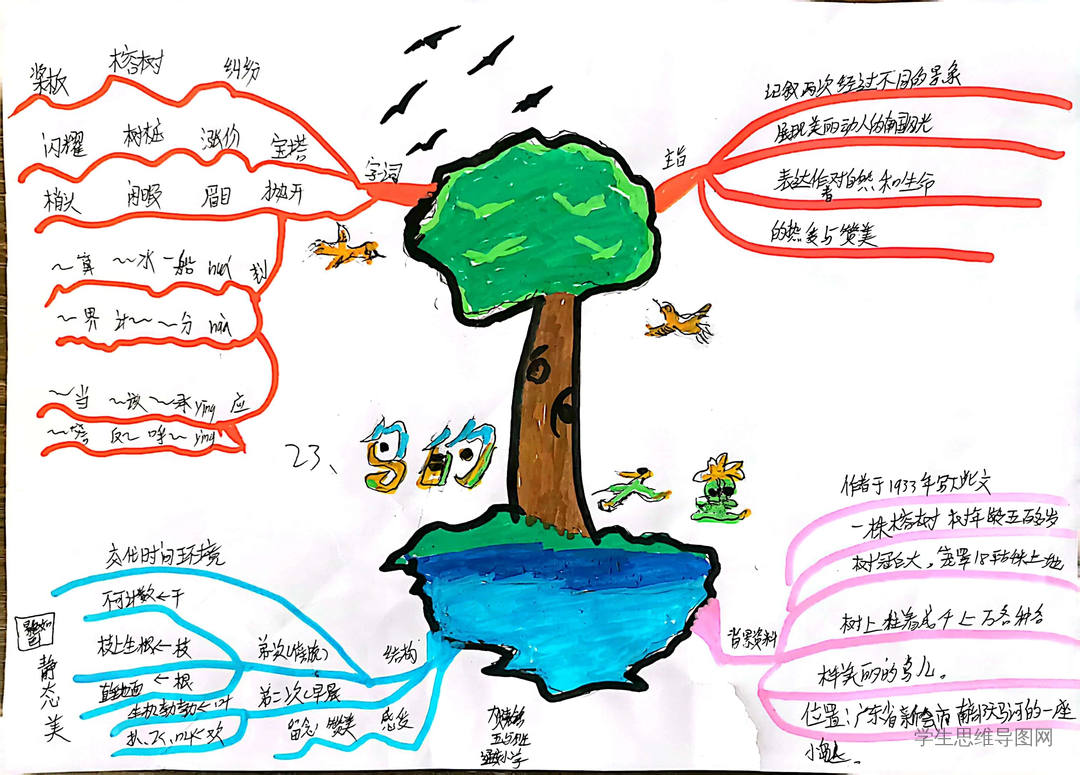 桨板 榕树 纠纷
闪耀 树桩 涨价 宝塔
梢头 闭眼 眉目 抛开
字词
～算 ～水 一船 huá 划
～界 计～ ～分 huà
～当 ～该 ～承 yīng 应
～答 反～ 呼～ yìng
主旨
记叙两次经过不同的景象
展现美丽动人的南国风光
表达作者对自然和生命
的热爱与赞美
23、鸟的天
背景资料
作者于1933年写此文
一株榕树 树年龄五百多岁
树上栖着成千上万各种各
样美丽的鸟儿。
位置：广东省新会市南部天马河的一座
小岛上
结构
交代时间环境
不可计数←干
枝上生根←枝
←根
生机勃勃←叶
静态美
第二次(早晨
感受
留恋 赞美
学生思维导图网